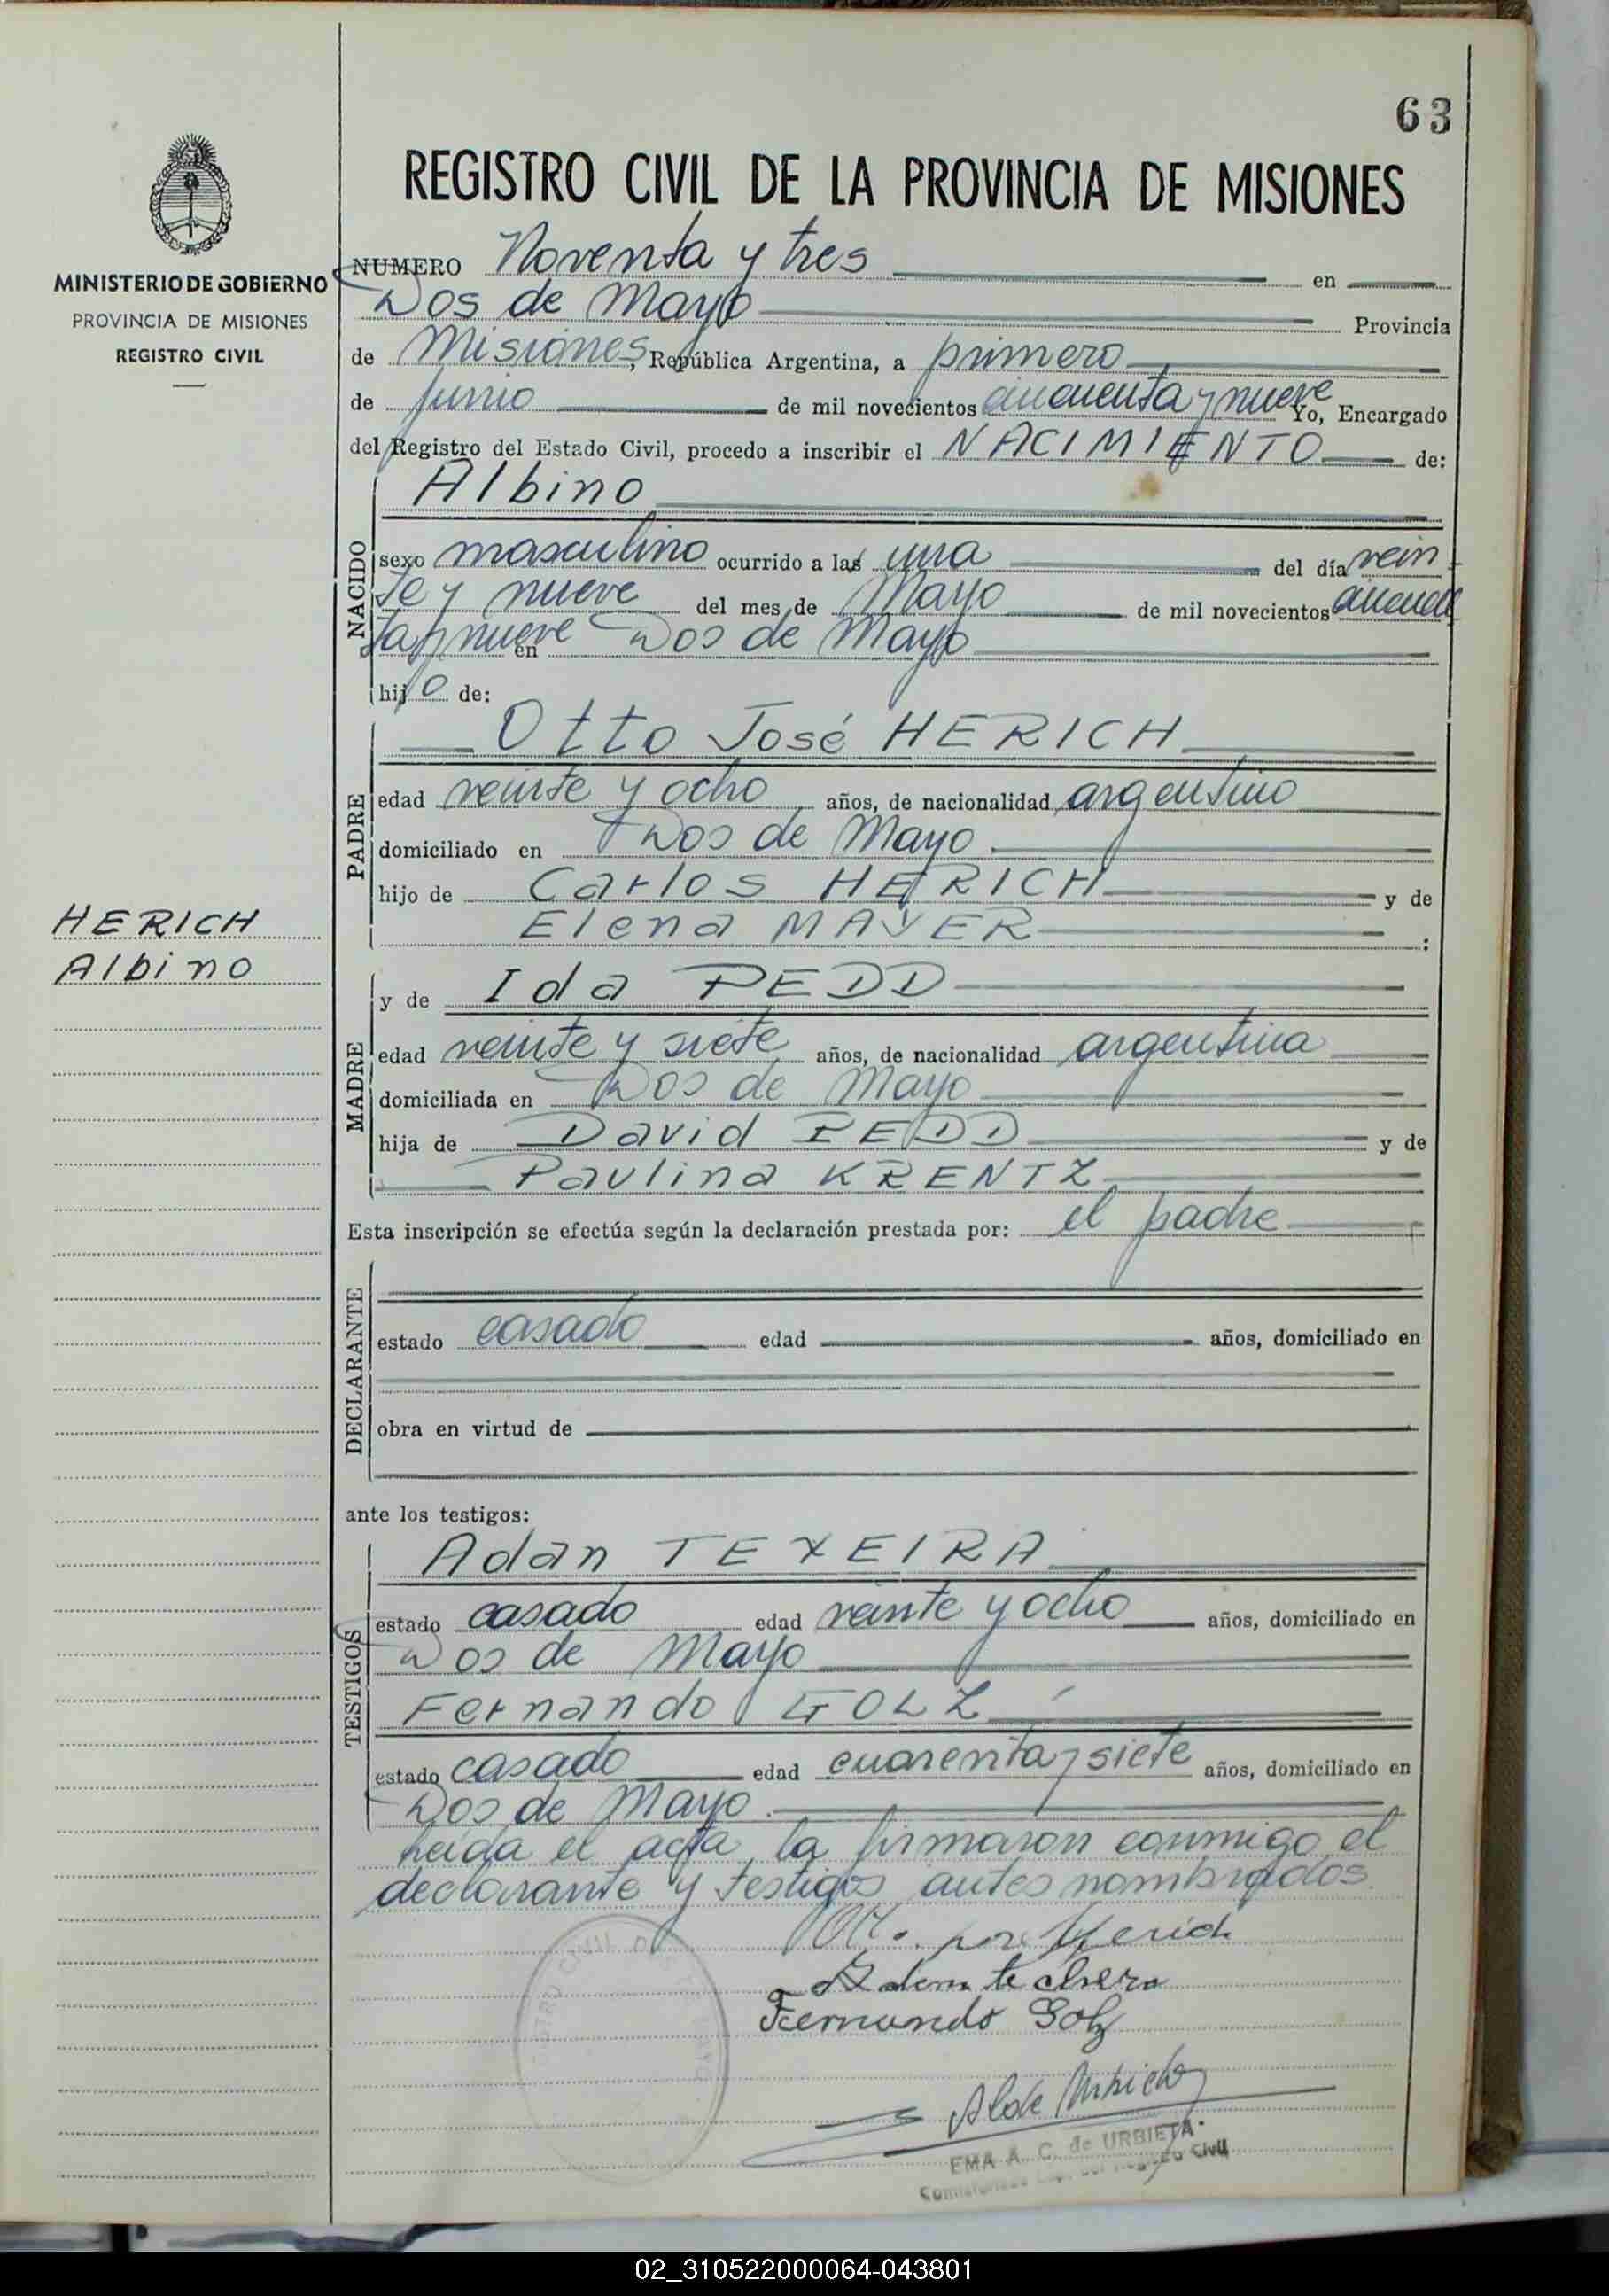 63
REGISTRO CIVIL DE LA PROVINCIA DE MISIONES
MINISTERIO DE GOBIERNO
PROVINCIA DE MISIONES
REGISTRO CIVIL
NUMERO Noventa y tres en
Dos de Mayo Provincia
de Misiones, República Argentina, a primero
de junio de mil novecientos cincuenta y nueve Yo, Encargado
del Registro del Estado Civil, procedo a inscribir el NACIMIENTO de:
Albino
NACIDO
sexo masculino ocurrido a las una del día vein
te y nueve del mes de Mayo de mil novecientos cincuen
ta y nueve en Dos de Mayo
hijo de:
Otto José HERICH
PADRE
edad veinte y ocho años, de nacionalidad argentino
domiciliado en Dos de Mayo.
hijo de Carlos HERICH y de
Elena MAYER :
HERICH
Albino
y de Ida PEDD
MADRE
edad veinte y siete años, de nacionalidad argentina
domiciliada en Dos de Mayo
hija de David PEDD y de
Paulina KRENTZ
Esta inscripción se efectúa según la declaración prestada por: el padre
DECLARANTE
estado casado edad años, domiciliado en
obra en virtud de
ante los testigos:
Adan TEXEIRA
TESTIGOS
estado casado edad veinte y ocho años, domiciliado en
Dos de Mayo
Fernando GOLZ
estado casado edad cuarenta y siete años, domiciliado en
Dos de Mayo.
Leída el acta, la firmaron conmigo el
declarante y testigos antes nombrados.
Herich
Adam
Fernando Golz
EMA A. C. de URBIETA
Civil
02_310522000064-043801